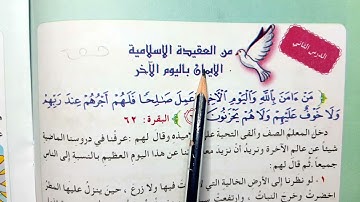 الدرس الثاني
من العقيدة الإسلامية
الإيمان باليوم الآخر
مَنْ ءَامَنَ بِاللَّهِ وَالْيَوْمِ الْآخِرِ عَمِلَ صَلِحًا فَلَهُمْ أَجْرُهُمْ عِندَ رَبِّهِمْ
وَلَا خَوْفٌ عَلَيْهِمْ وَلَا هُمْ يَحْزَنُونَ البقرة: ٦٢
دخل المعلم الصف وألقى التحية تلاميذه وقال لهم: عرفنا في دروسنا الماضية
شيئاً عن عالم الآخرة ونريد أن نزيد عن هذا اليوم العظيم بالنسبة إلى الناس
جميعاً. ثم قال لهم:
١ . لو نظرنا إلى الأرض الخالية التي لا نبات فيها ولا زرع ، حين ينزل عليها المطر
اخضرت وخرج النبات